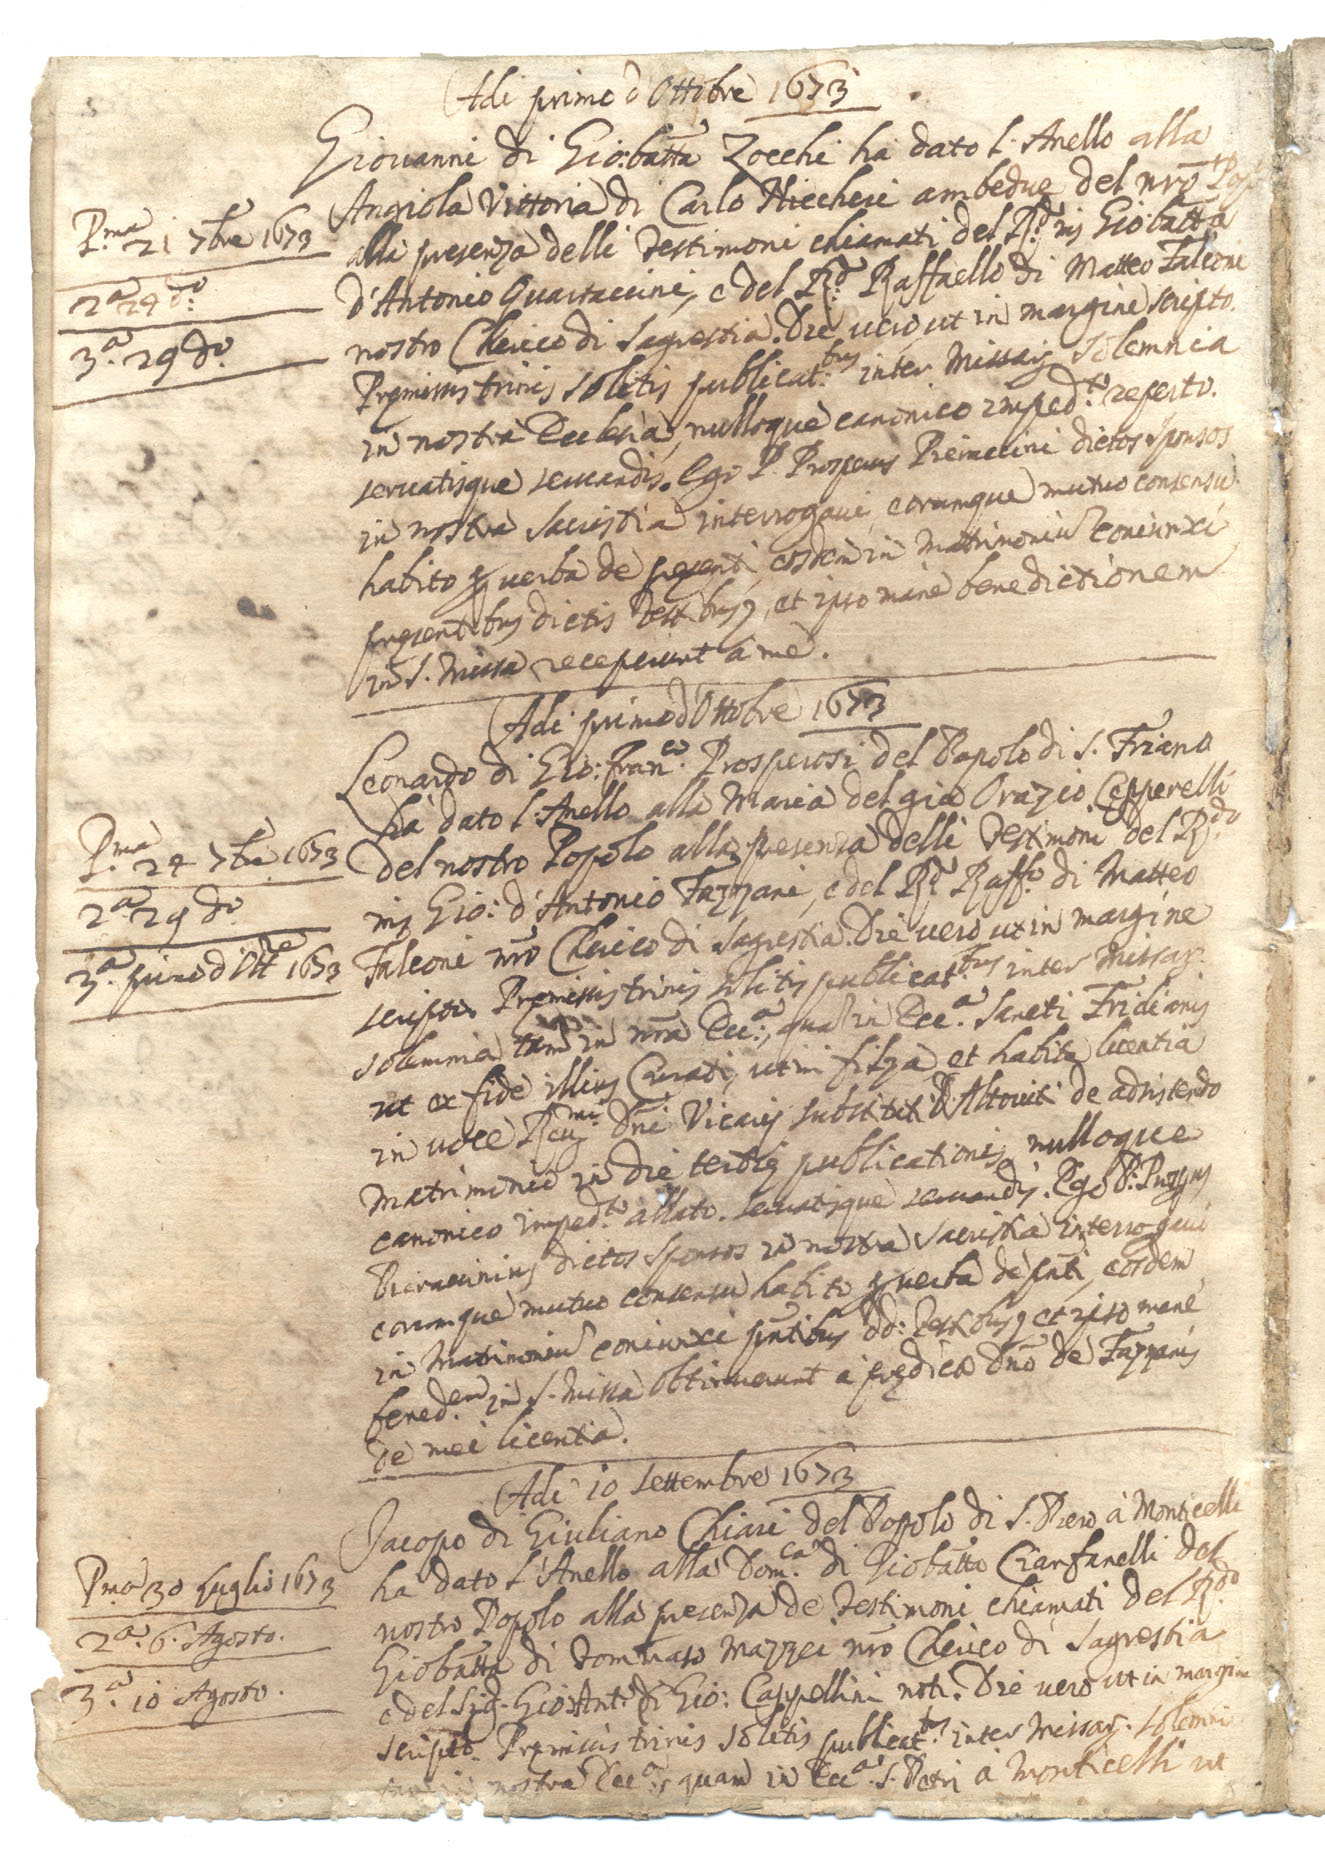 Adi primo d'Ottobre 1673
Giovanni di Gio:batta Zocchi ha dato l'Anello alla
Angiola Vittoria di Carlo ambedue del nro Pop
alla presenza delli Testimoni chiamati del Rdo Giobatta
d'Antonio Guartaccini, e del Rdo Raffaello di Matteo Falconi
nostro Cherico di Sagrestia. Die vero ut in margine scripto.
Premissis trinis solitis publicat.bus inter Missarum solemnia
in nostra Ecclesia, nulloque canonico imped.to reperto.
servatisque servandis. Ego P. Prosperus dictos sponsos
in nostra sacristia interrogavi, eorumque mutuo consensu
habito per verba de presenti, eosdem in Matrimoniu coniunxi
presentibus dictis Testibus, et ipso mane benedictionem
in S. Missa receperunt a me.
Pma 21 7bre 1673
2a 24 do.
3a. 29 do.
Adi primo d'Ottobre 1673
Leonardo di Gio: Fran.co Prosperosi del Popolo di S. Friano
ha dato l'Anello alla Maria del gia Orazio Cepperelli
del nostro Popolo alla presenza delli Testimoni del Rdo
Gio: d'Antonio Fazzani, e del Rdo Raff.o di Matteo
Falconi nro Cherico di Sagrestia. Die vero ut in margine
scripto. Premissis trinis solitis publicat.bus inter Missar.
solemnia tam in nra Ecc.a, qua in Ecc.a Sancti Fridiani
ut ex fide illius Curati, ut in filza et habita licentia
in voce Dni Vicarij substituti D. Altoviti de adsistendo
Matrimonio in die tertiae publicationis, nulloque
canonico imped.to allato. servatisque servandis. Ego P.
dictos sponsos in nostra sacristia interrogavi
eorumque mutuo consensu habito per verba de pnti, eosdem
in Matrimoniu coniunxi pntibus dd: Testibus, et ipso mane
bened.em in S. Missa obtinuerunt a predicto Dno de Fazzanis
de mei licentia.
Pma 24 7bre 1673
2a. 29 do
3a. primo d'Ott.re 1673
Adi 10 Settembre 1673
Jacopo di Giuliano Chiari del Popolo di S. Piero a Monticelli
ha dato l'Anello alla Dom.ca di Giobatta Cianfanelli del
nostro Popolo alla presenza de Testimoni chiamati del Rdo
Giobatta di Tommaso Mazzei nro Cherico di Sagrestia
e del Sig. Gio:Ant.o di Gio: Cappellini noti. Die vero ut in margine
scripto. Premissis trinis solitis publicat.bus inter Missar. solemni
tam in nostra Ecc.a, quam in Ecc.a S. Petri a Monticelli ut
Pma 30 Luglio 1673
2a. 6. Agosto.
3a. 10 Agosto.